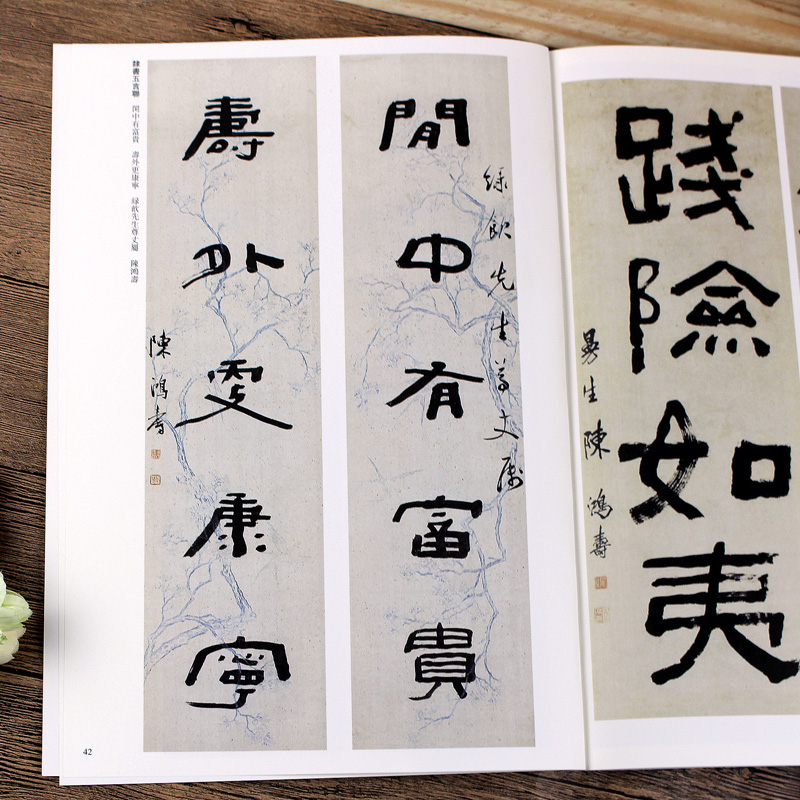 踐險如夷
曼生陳鴻壽
綠飲先生尊丈屬
閒中有富貴
壽外更康寧
陳鴻壽
隸書五言聯 閒中有富貴 壽外更康寧 綠飲先生尊丈屬 陳鴻壽
42